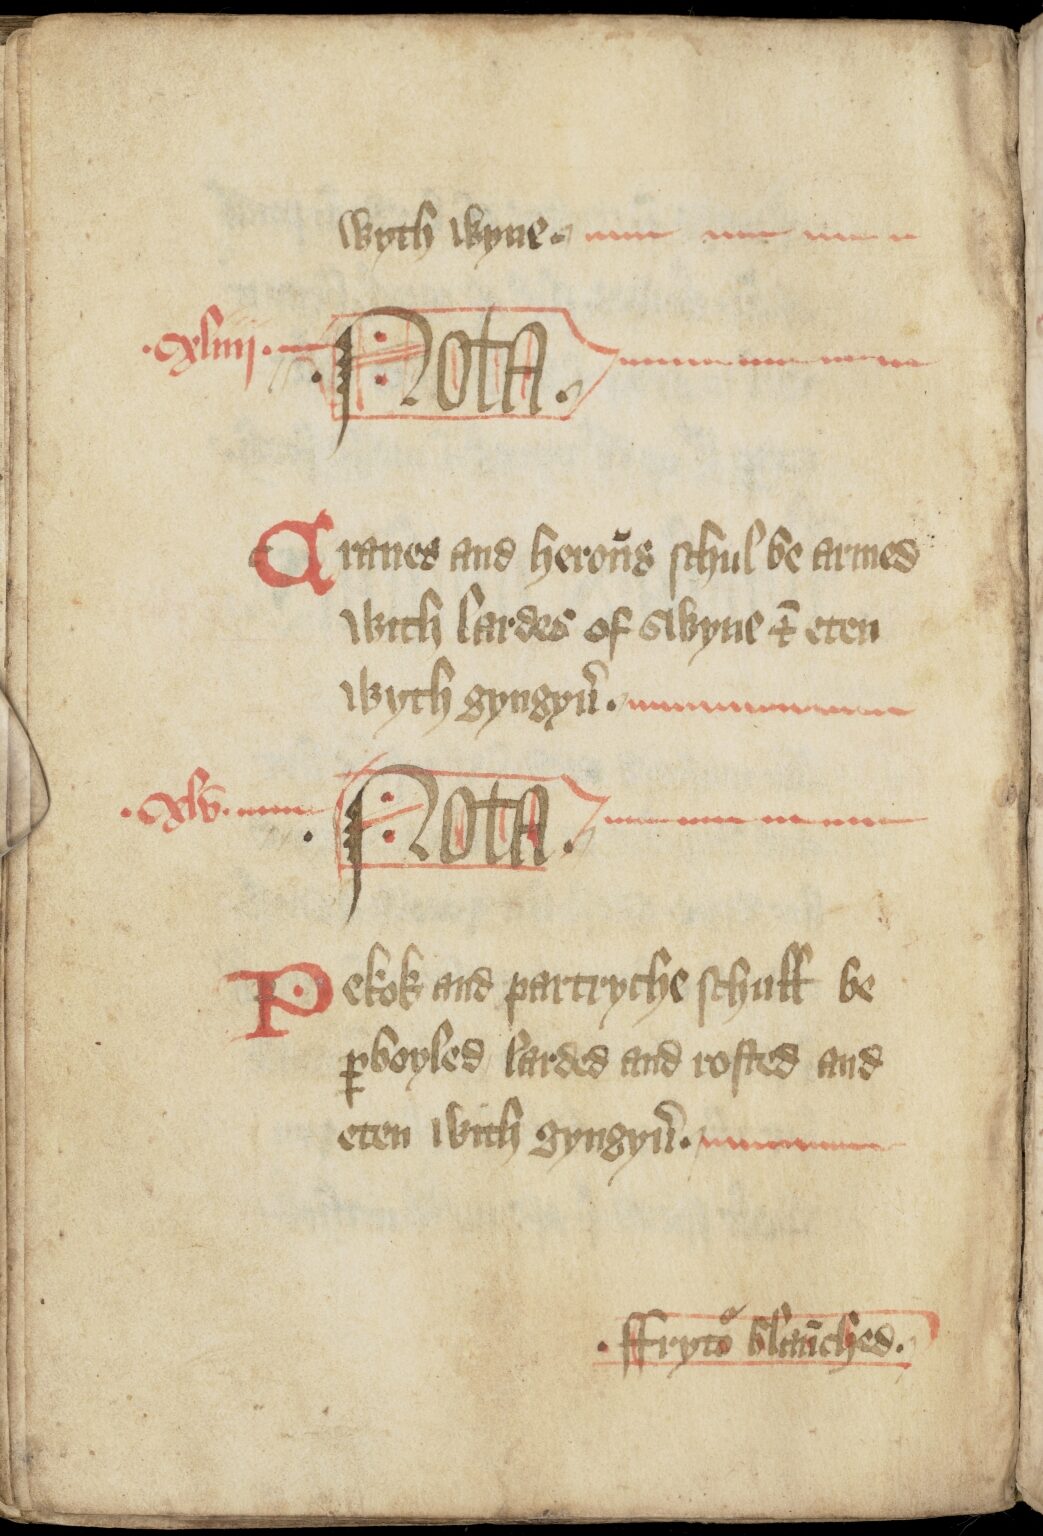 wyth wyne.
.cxliiij. .Nota.
Cranes and heroūs schul be armed
with lardes of swyne ⁊ eten
wyth gyngyū̉.
.cxlv. .Nota.
Pekok and partryche schull be
ꝑboyled larded and rosted and
eten with gyngyū̉.
.ffrytoᷣ blaūched.